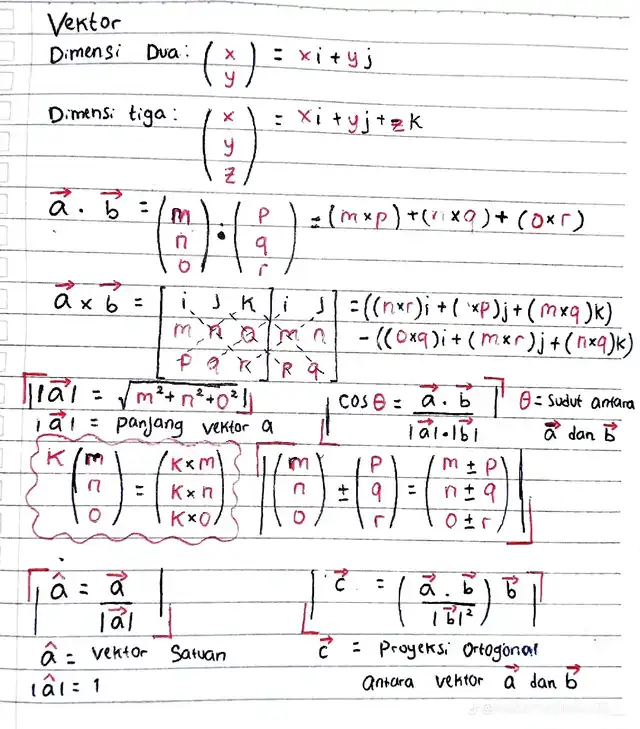 Vektor
Dimensi Dua: (x y) = xi + yj
Dimensi tiga: (x y z) = xi + yj + zk
a⃗ . b⃗ = (m n o) • (p q r) = (m×p) + (n×q) + (o×r)
a⃗ × b⃗ = [i j k | i j] = ((n×r)i + ( ×p)j + (m×q)k)
[m n o | m n] - ((o×q)i + (m×r)j + (n×q)k)
[p q r | p q]
|a⃗| = √m²+n²+o²
|a⃗| = panjang vektor a
cos θ = a⃗ . b⃗ / |a⃗|•|b⃗|
θ = sudut antara
a⃗ dan b⃗
K (m n o) = (K×m K×n K×o)
(m n o) ± (p q r) = (m ± p n ± q o ± r)
â = a⃗ / |a⃗|
c⃗ = (a⃗ . b⃗ / |b⃗|²) b⃗
â = vektor satuan
|â| = 1
c⃗ = Proyeksi Ortogonal
antara vektor a⃗ dan b⃗